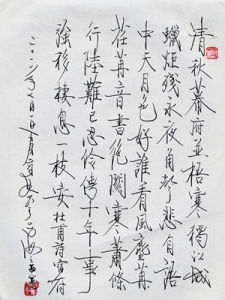 清秋幕府井梧寒獨江城
蠟炬殘永夜角聲悲自語
中天月色好誰看風塵
荏苒音書絕關寒蕭條
行陸難已忍伶俜十年事
強移棲息一枝安 杜甫詩宿府